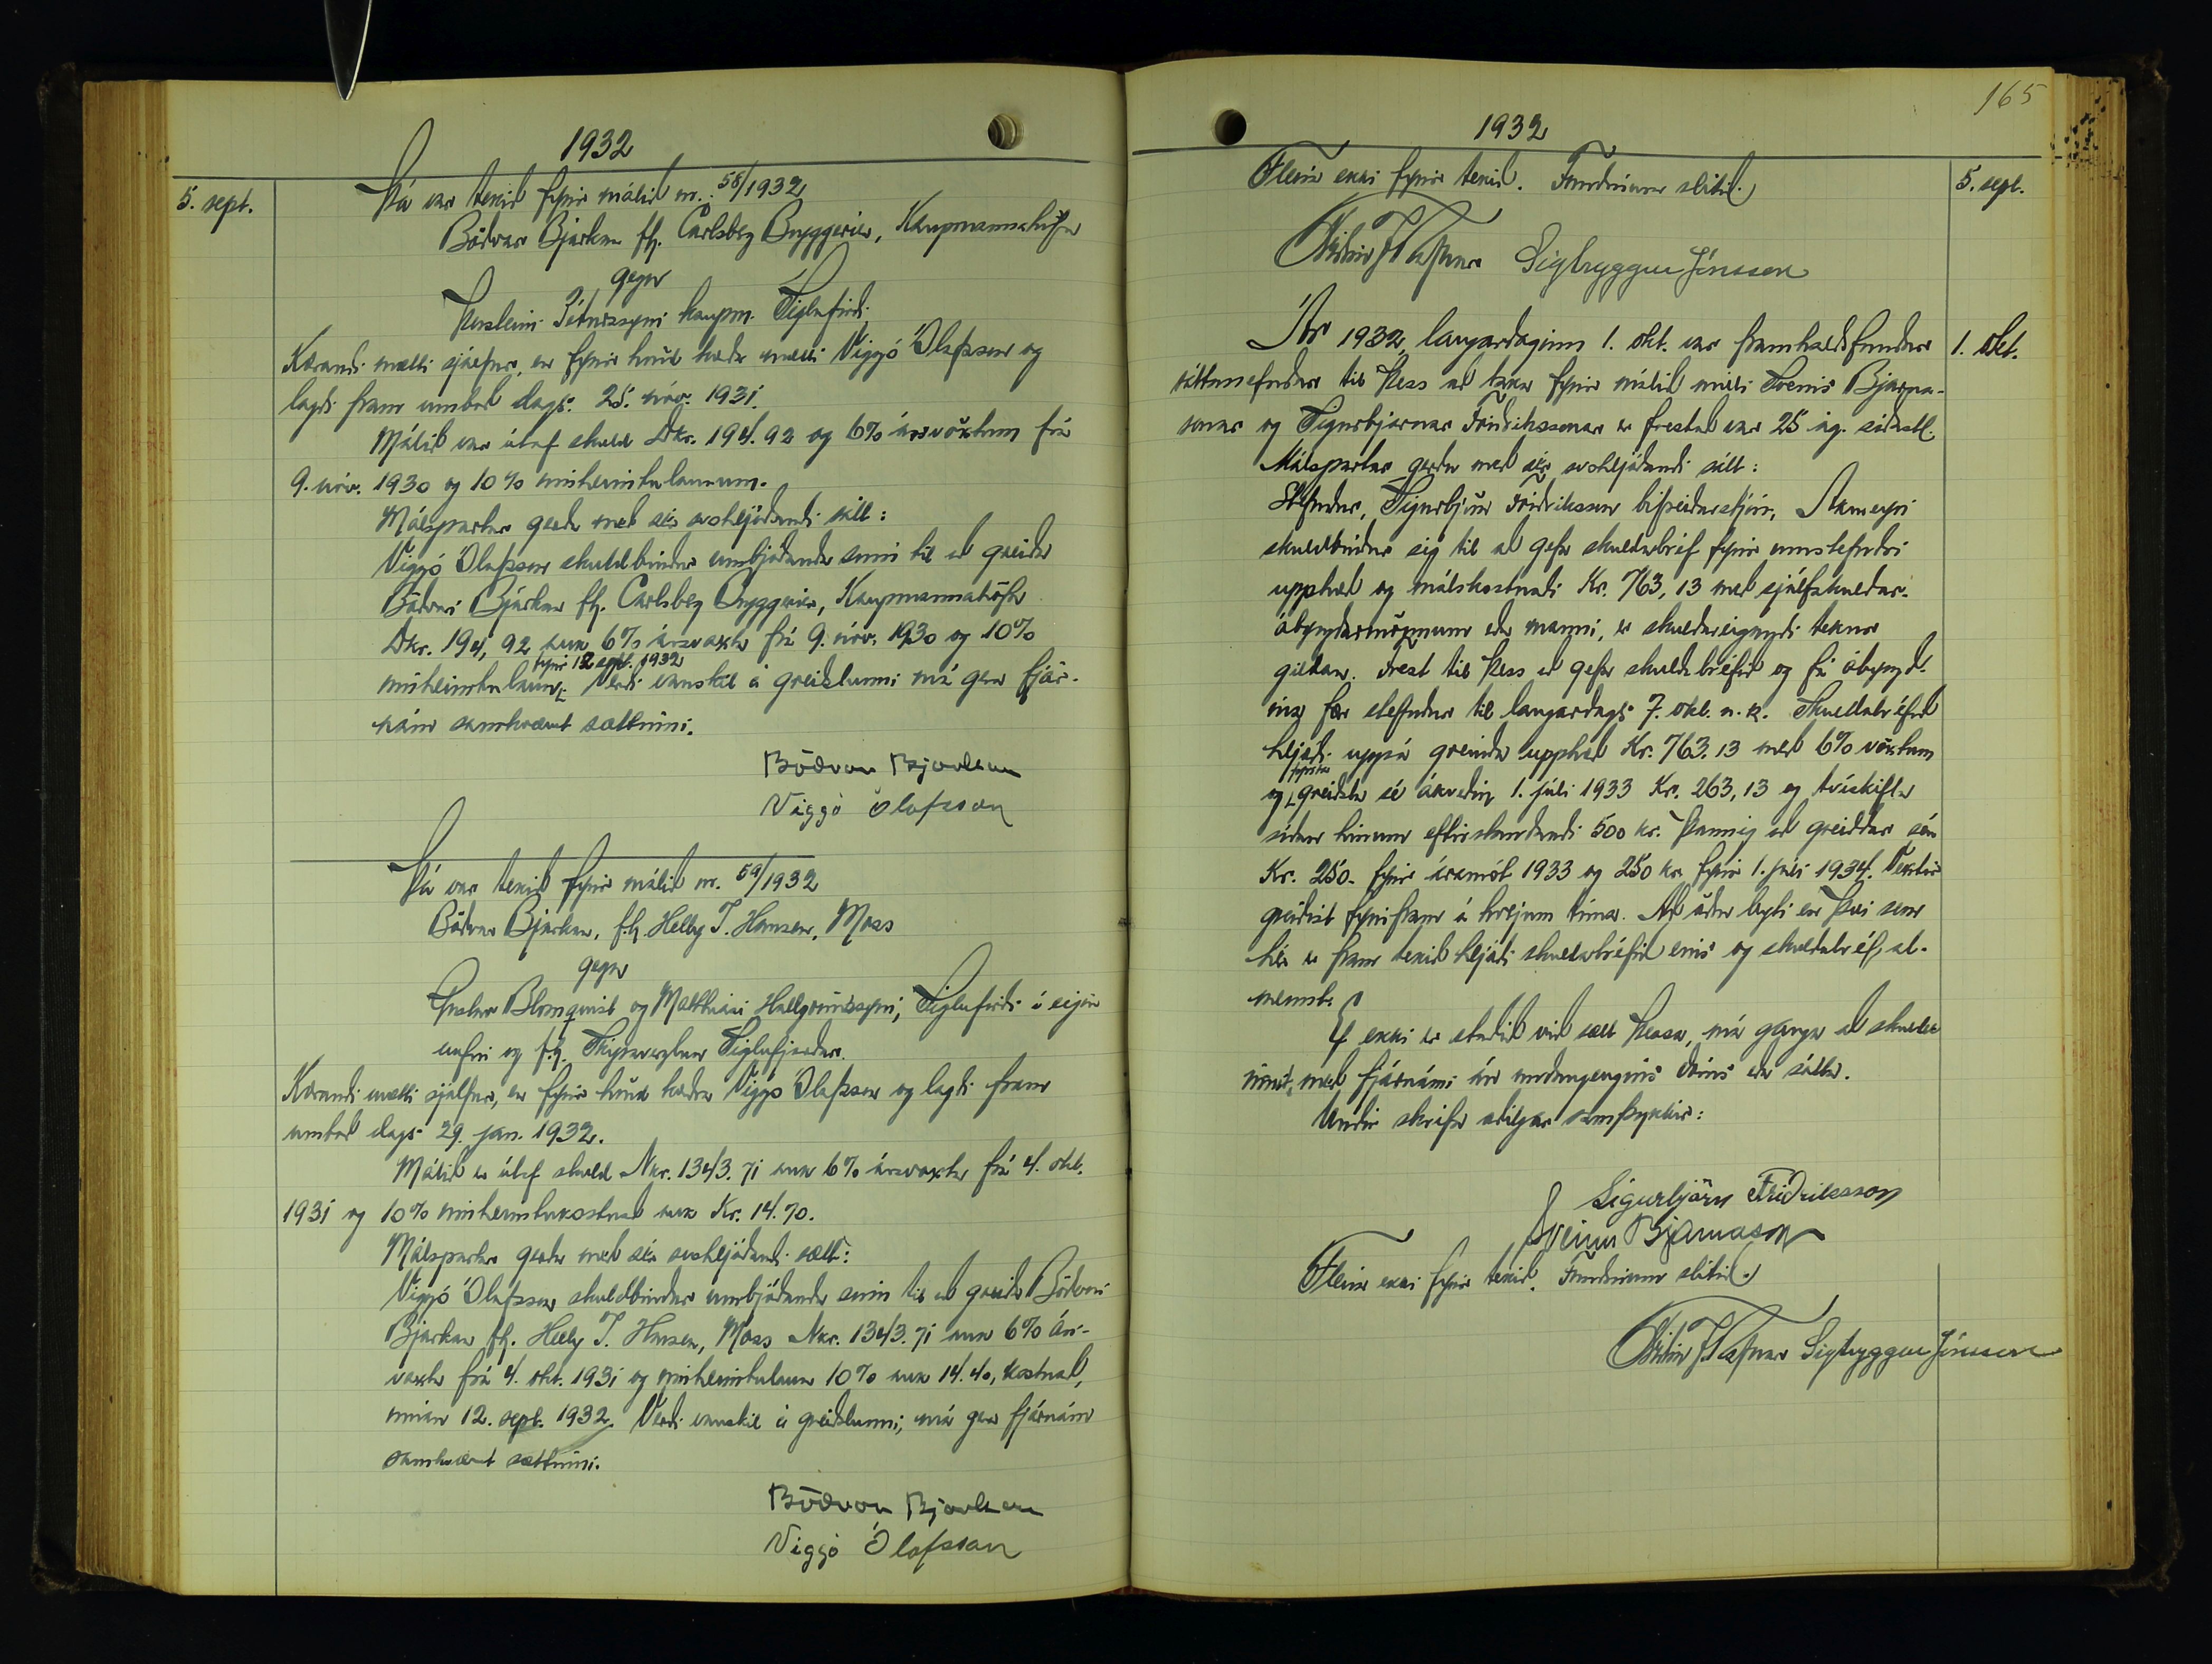 1932
5. sept.
Þá var tekið fyrir málið nr. 58/1932
Böðvar Bjarkan fh. Carlsberg Bryggerier, Kaupmannahöfn
gegn
Þorsteini Péturssyni kaupm. Siglufirði.
Kærandi mætti sjálfur, en fyrir hönd kærða mætti Viggó Ólafsson og
lagði fram umboð dags. 25. nóv. 1931.
Málið var útaf skuld Dkr. 194.92 og 6% ársvöxtum frá
9. nóv. 1930 og 10% innheimtulaunum.
Málspartar gerðu með sér svohljóðandi sátt:
Viggó Ólafsson skuldbindur umbjóðanda sinn til að greiða
Böðvari Bjarkan fh. Carlsberg Bryggerier, Kaupmannahöfn
Dkr. 194,92 auk 6% ársvaxta frá 9. nóv. 1930 og 10%
fyrir 12 sept. 1932
innheimtulaun. Verði vanskil á greiðslunni má gera fjár-
nám samkvæmt sættinni.
Böðvar Bjarkan
Viggó Ólafsson
Þá var tekið fyrir málið nr. 59/1932
Böðvar Bjarkan, f.h. Helly J. Hansen, Moss
gegn
Gustav Blomquist og Matthíasi Hallgrímssyni, Siglufirði í eigin
nafni og f.h. Skipaverzlunar Siglufjarðar.
Kærandi mætti sjálfur, en fyrir hönd kærðra Viggó Ólafsson og lagði fram
umboð dags. 29. jan. 1932.
Málið er útaf skuld Nkr. 1343.71 auk 6% ársvaxta frá 4. okt.
1931 og 10% innheimtukostnað auk Kr. 14.70.
Málspartar gerðu með sér svohljóðandi sætt:
Viggó Ólafsson skuldbindur umbjóðanda sinn til að greiða Böðvari
Bjarkan fh. Helly J. Hansen, Moss Nkr. 1343.71 auk 6% árs-
vaxta frá 4. okt. 1931 og innheimtulaun 10% auk 14.40, kostnað,
innan 12. sept. 1932. Verði vanskil á greiðslunni, má gera fjárnám
samkvæmt sættinni.
Böðvar Bjarkan
Viggó Ólafsson
165
1932
Fleira ekki fyrir tekið. Fundinum slitið.
5. sept.
Friðrik J. Rafnar Sigtryggur Jónsson
Ár 1932, laugardaginn 1. okt. var framhaldsfundur
1. okt.
sáttanefndar til þess að taka fyrir málið milli Sveins Bjarna-
sonar og Sigurbjarnar Friðrikssonar er frestað var 25 ág. síðastl.
Málspartar gerðu með sér svohljóðandi sátt:
Stefndur, Sigurbjörn Friðriksson bifreiðarstjóri, Akureyri
skuldbindur sig til að gefa skuldabréf fyrir umstefndri
upphæð og málskostnaði Kr. 763,13 með sjálfskuldar-
ábyrgðarmönnum eða manni, er skuldareigandi tekur
gildan. Frest til þess að gefa skuldabréfið og fá ábyrgð-
ina fær stefndur til laugardags 7. okt. n.k. Skuldabréfið
hljóði uppá greinda upphæð Kr. 763.13 með 6% vöxtum
fyrsta
og greiðsla sé ákveðin 1. júli 1933 Kr. 263,13 og tvískifta
síðan hinum eftirstandandi 500 kr. þannig að greiddar séu
Kr. 250.- fyrir áramót 1933 og 250 kr. fyrir 1. júli 1934. Vextir
greiðist fyrirfram á hverjum tíma. Að öðru leyti en því sem
hér er fram tekið hljóði skuldabréfið eins og skuldabréf al-
mennt.
Ef ekki er staðið við sætt þessa, má ganga að skulda
með fjárnámi án undangengins dóms eða sáttar.
Undir skrifa aðiljar samþykkir:
Sigurbjörn Friðriksson
Sveinn Bjarnason
Fleira ekki fyrir tekið. Fundinum slitið.
Friðrik J. Rafnar Sigtryggur Jónsson